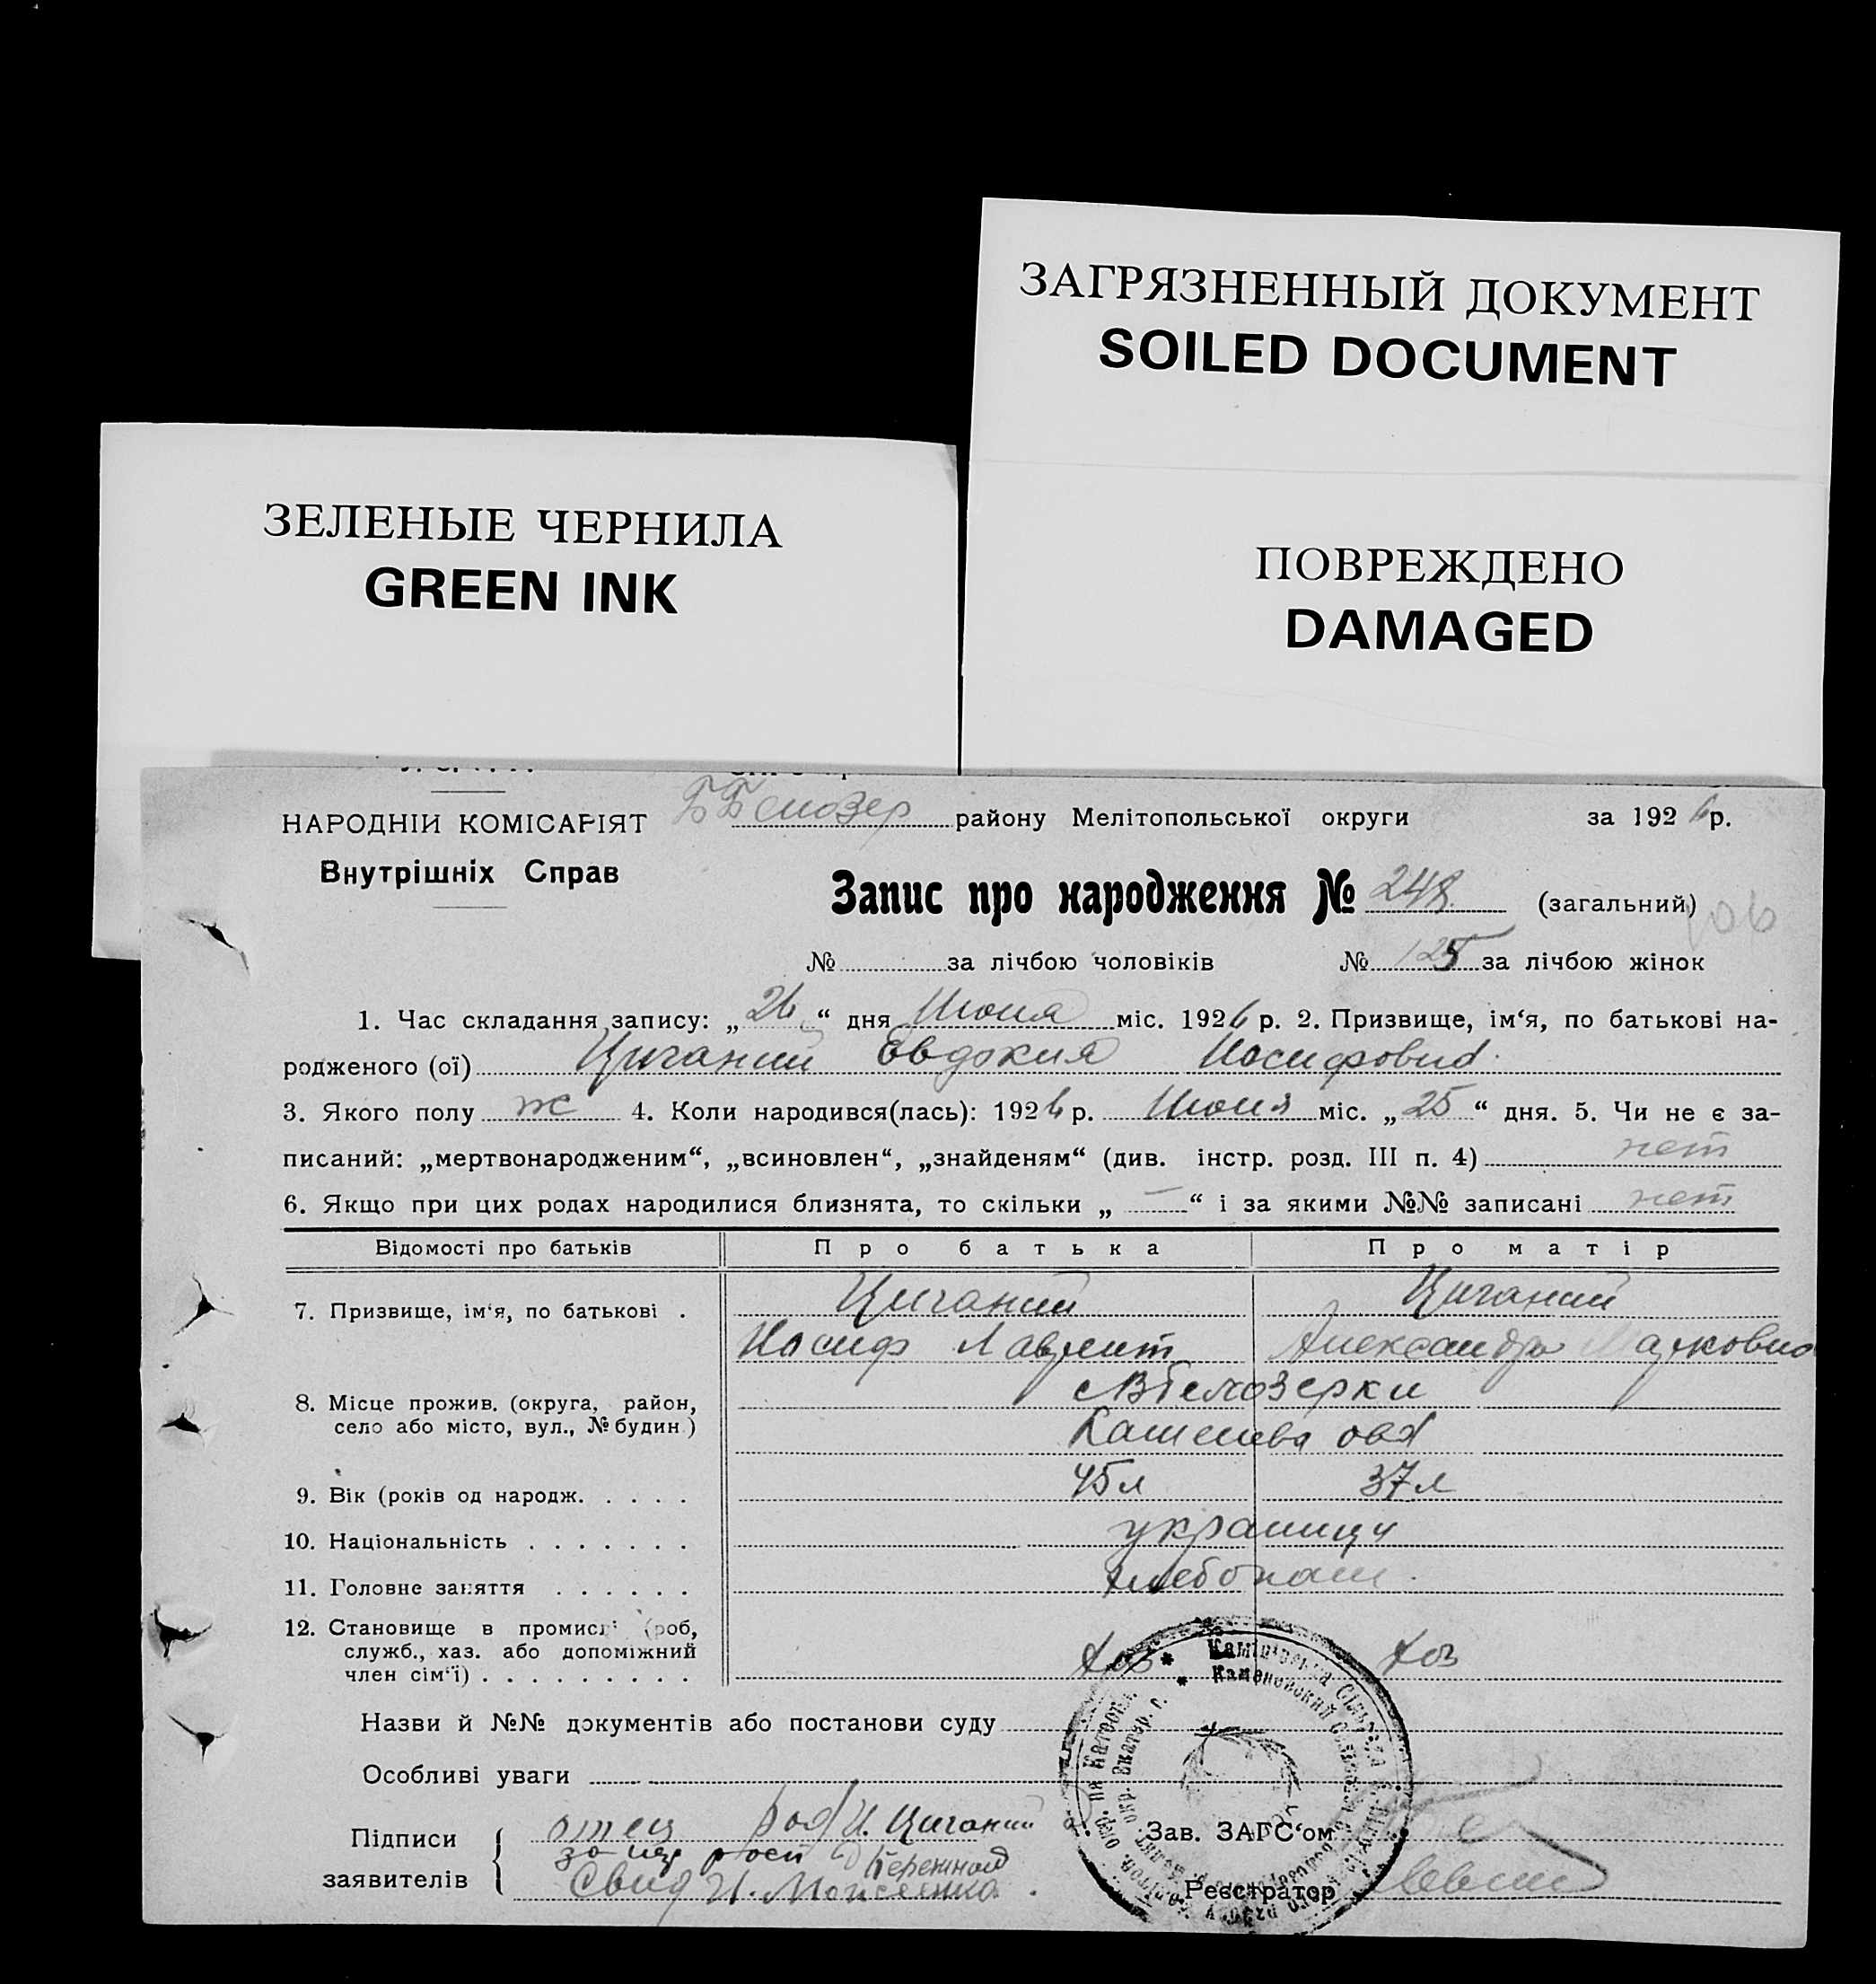 ЗАГРЯЗНЕННЫЙ ДОКУМЕНТ
SOILED DOCUMENT
ЗЕЛЕНЫЕ ЧЕРНИЛА
GREEN INK
ПОВРЕЖДЕНО
DAMAGED
НАРОДНІЙ КОМІСАРІЯТ
Внутрішніх Справ
району Мелітопольської округи за 1926 р.
Запис про народження № 248 (загальний)
№ за лічбою чоловіків № 125 за лічбою жінок
1. Час складання запису: „26“ дня Июня міс. 1926 р. 2. Призвище, ім‘я, по батькові на-
родженого (ої) Циганий Евдокия Иосифовна
3. Якого полу ж 4. Коли народився(лась): 1926 р. Июня міс. „25“ дня. 5. Чи не є за-
писаний: „мертвонародженим“, „всиновлен“, „знайденям“ (див. інстр. розд. III п. 4) нет
6. Якщо при цих родах народилися близнята, то скільки „—“ і за якими №№ записані нет
Відомості про батьків Про батька Про матір
7. Призвище, ім‘я, по батькові . Циганий Циганий
Иосиф Лаврент Александра Марковна
8. Місце прожив. (округа, район,
село або місто, вул., № будин.)
9. Вік (років од народж. . . . . 45 л 37 л
10. Національність . . . . . . . украинцы
11. Головне заняття . . . . . . хлебопаш.
12. Становище в промислі (роб,
служб., хаз. або допоміжний
член сім‘ї) . . . . . . . . . хоз хоз
Назви й №№ документів або постанови суду
Особливі уваги
Підписи
заявителів
отец И. Циганий
Бережной
Свид И. Моисеенко
Зав. ЗАГС‘ом
Реєстратор